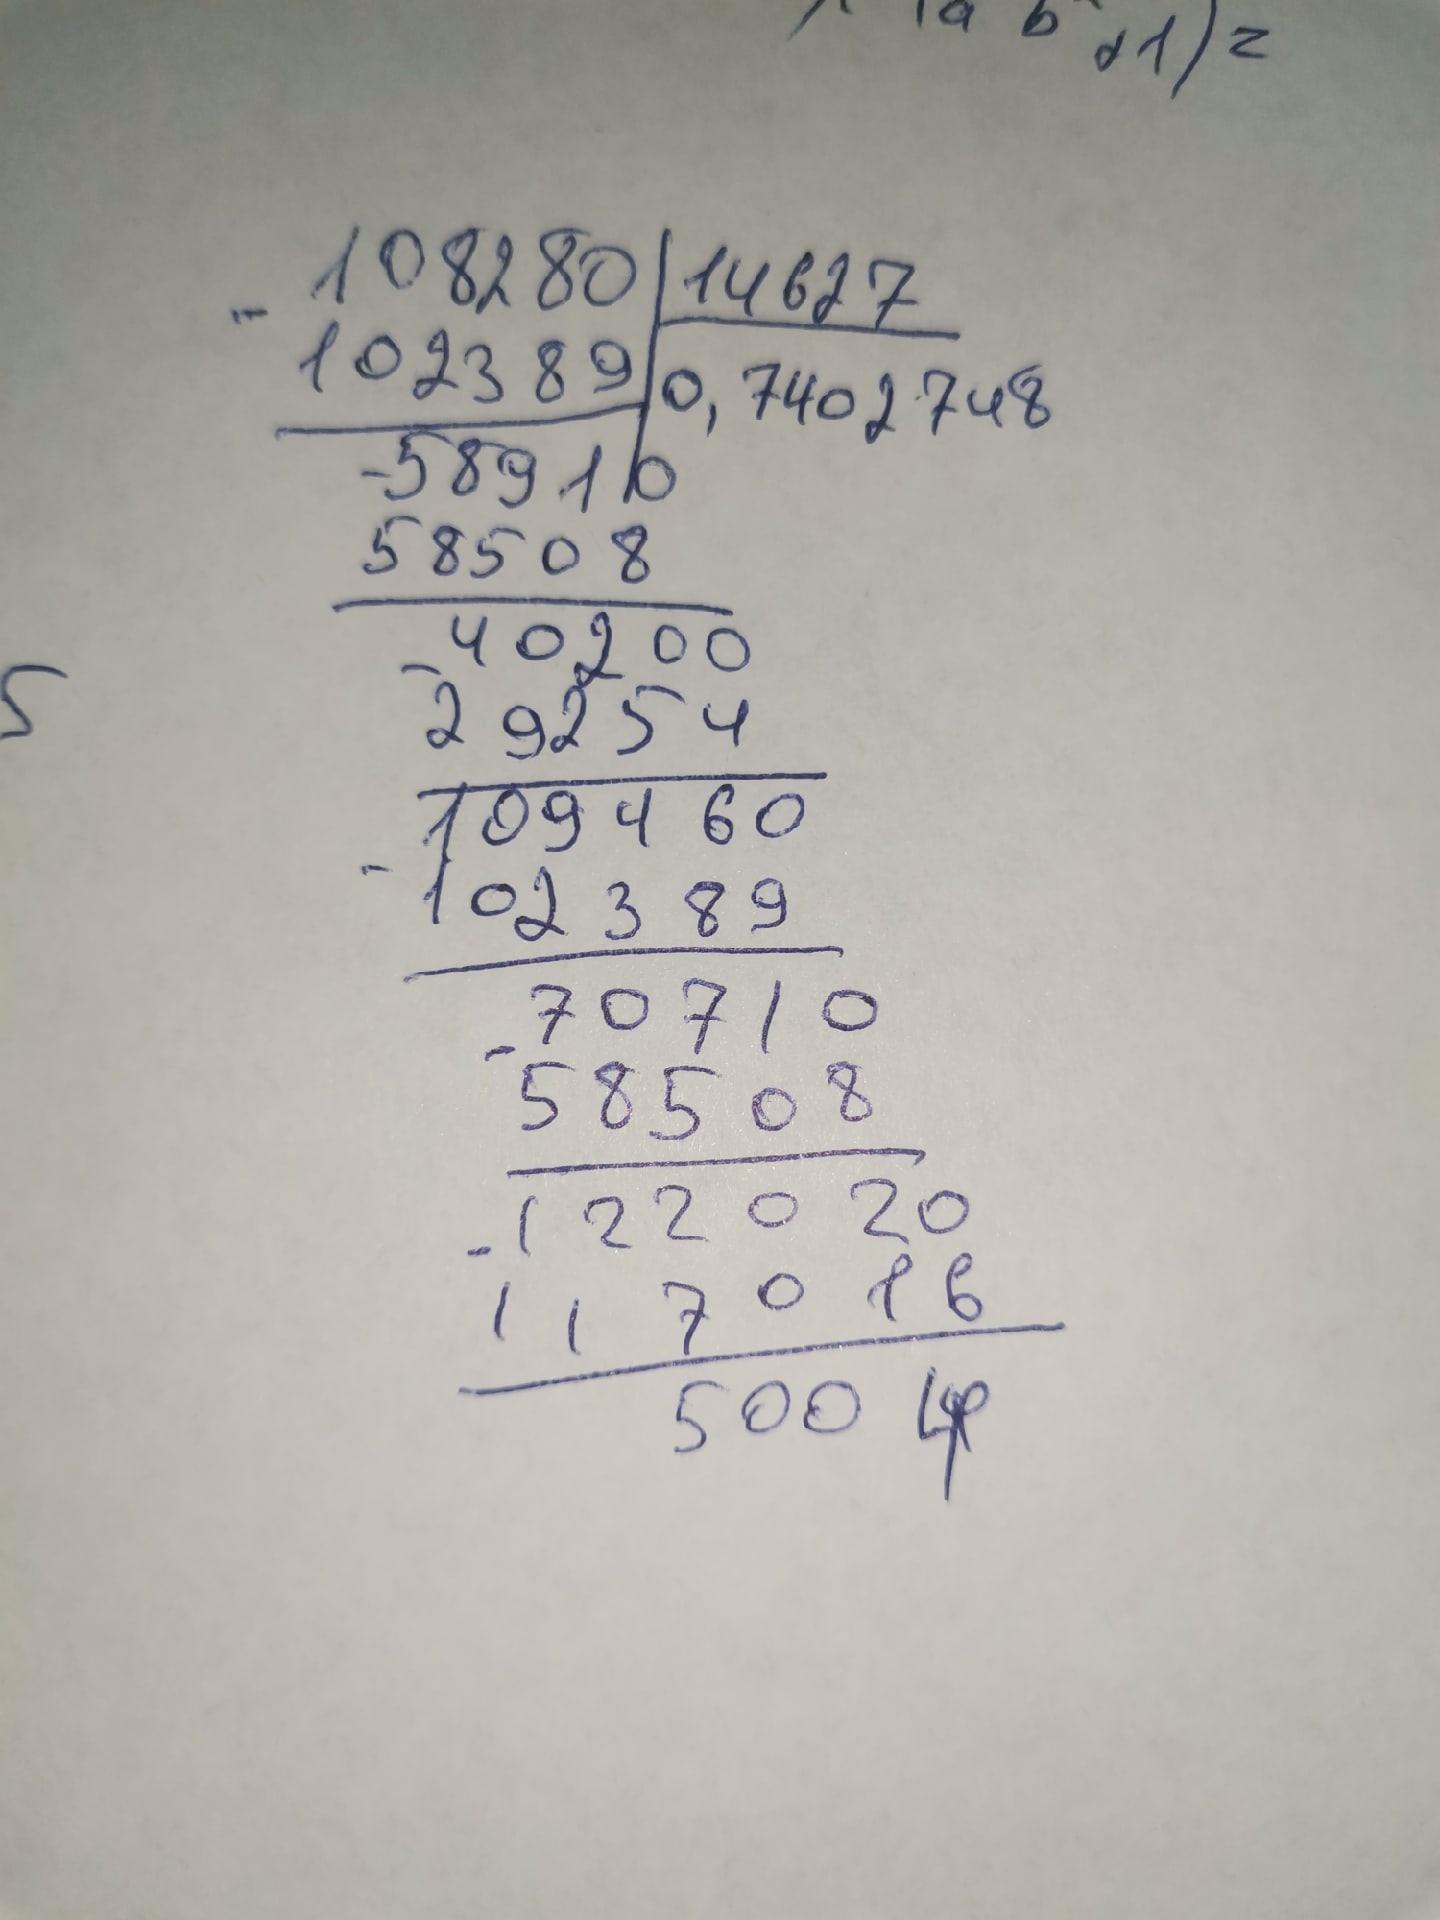 a b +1)=
108280 | 14627
- 102389 | 0,7402748
-58910
58508
- 40200
29254
109460
- 102389
70710
- 58508
122020
- 117016
5004
5